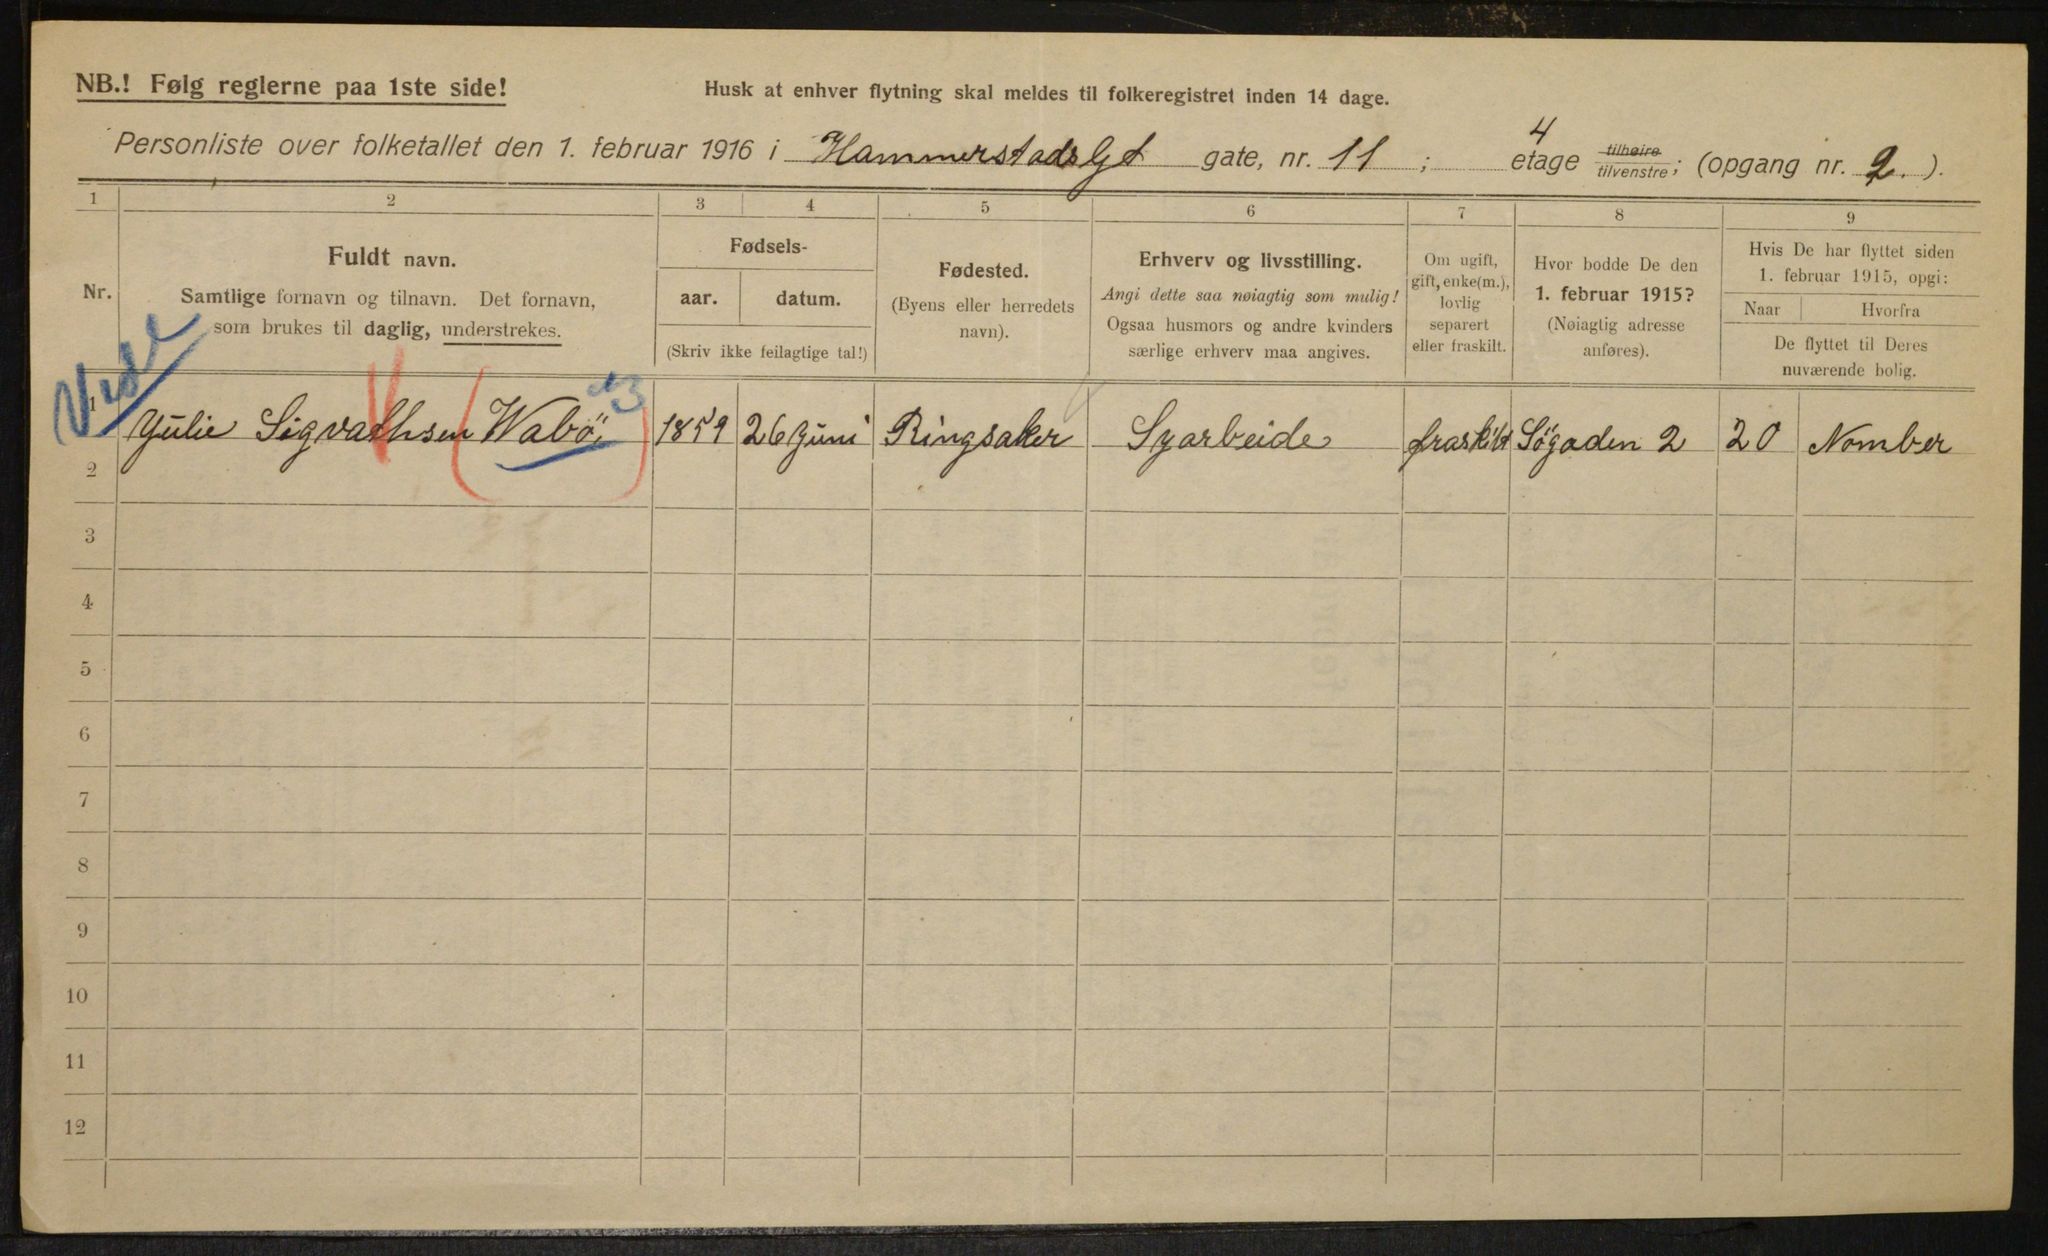 NB.! Følg reglerne paa 1ste side!
Husk at enhver flytning skal meldes til folkeregistret inden 14 dage.
Personliste over folketallet den 1. februar 1916 i HammerstadsGt gate, nr. 11 ; 4 etage tilhøire tilvenstre; (opgang nr. 2. ).
1 2 3 4 5 6 7 8 9
Nr.
Fuldt navn.
Samtlige fornavn og tilnavn. Det fornavn,
som brukes til daglig, understrekes.
Fødsels-
aar. datum.
(Skriv ikke feilagtige tal!)
Fødested.
(Byens eller herredets
navn).
Erhverv og livsstilling.
Angi dette saa nøiagtig som mulig!
Ogsaa husmors og andre kvinders
særlige erhverv maa angives.
Om ugift,
gift, enke(m.),
lovlig
separert
eller fraskilt.
Hvor bodde De den
1. februar 1915?
(Nøiagtig adresse
anføres).
Hvis De har flyttet siden
1. februar 1915, opgi:
Naar Hvorfra
De flyttet til Deres
nuværende bolig.
1 Yulie Sigvathsen (Wabö) 1859 26 Yuni Ringsaker Syarbeide fraskilt Sögaden 2 20 Nomber
2
3
4
5
6
7
8
9
10
11
12